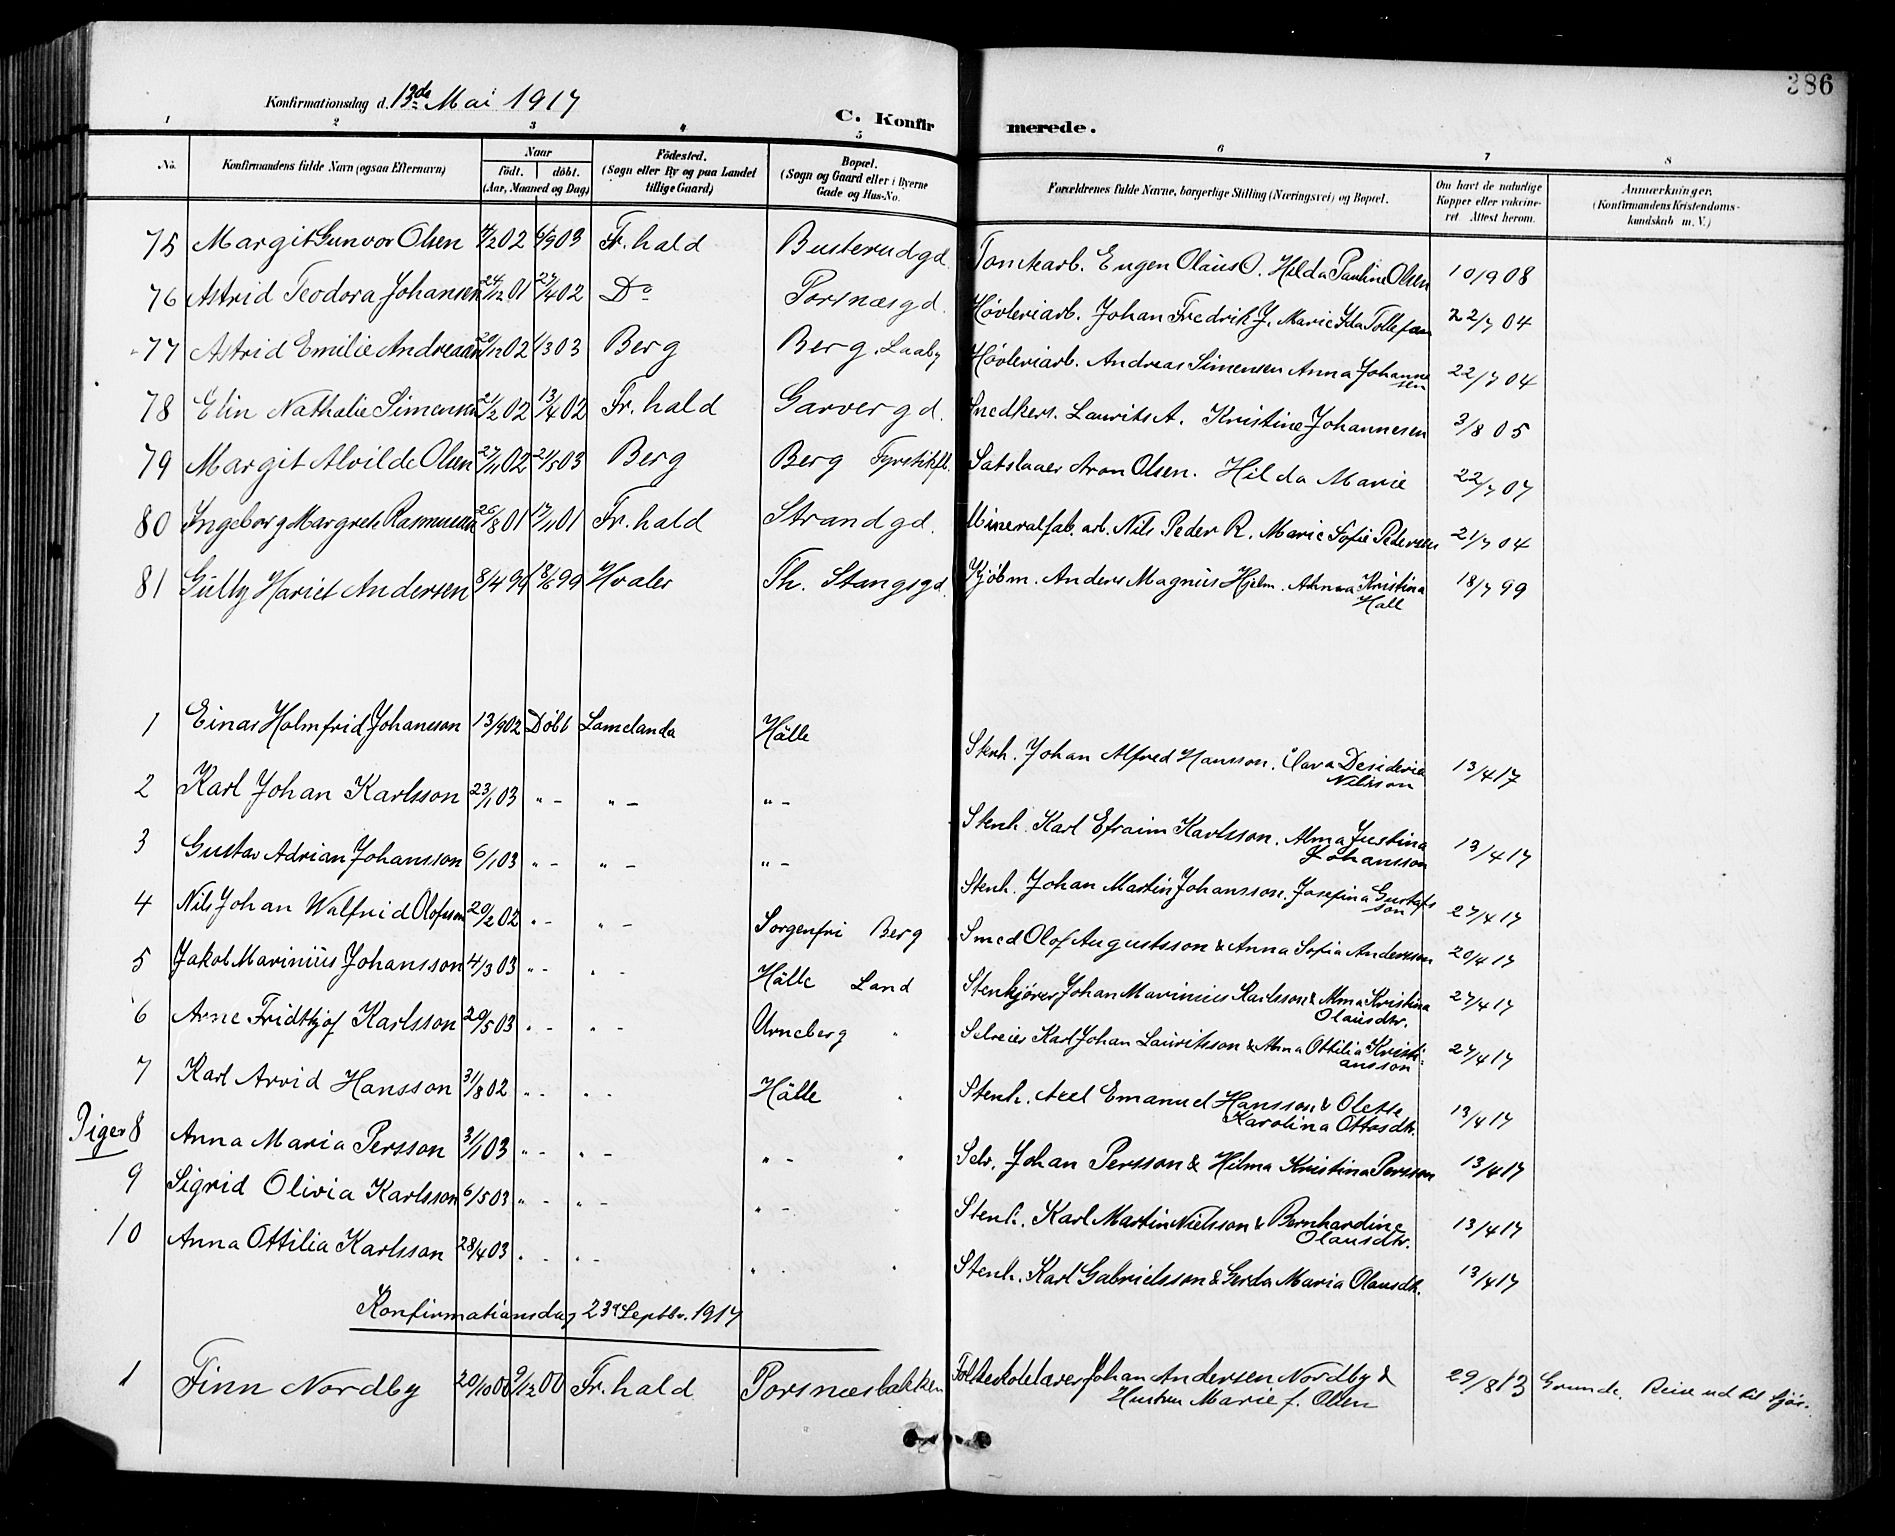 386
Konfirmationsdag d. 13de Mai 1917
C. Konfirmerede.
1 2 3 4 5 6 7 8
No. Konfirmandens fulde Navn (ogsaa Efternavn) Naar født. døbt. (Aar, Maaned og Dag) Fødested. (Sogn eller By og paa Landet tillige Gaard) Bopæl. (Sogn og Gaard eller i Byerne Gade og Hus-No. Forældrenes fulde Navne, borgerlige Stilling (Næringsvei) og Bopæl. Om havt de naturlige Kopper eller vakcineret Attest herom. Anmærkninger. (Konfirmandens Kristendomskundskab m. V.)
75 Margit Gunvor Olsen 02 6/9 03 Fr.hald Busterudgd. Tomtearb. Eugen Olaus O. Hilda Pauline Olsen 10/9 08
76 Astrid Teodora Johansen 24/12 01 27/4 02 Do Porsnæsgd. Høvleriarb. Johan Fredrik J. Marie Ida Tollefsen 22/7 04
77 Astrid Emilie Andreasen 20/12 02 1/3 03 Berg Berg. Laaby Høvleriarb. Andreas Simensen Anna Johannesen 22/7 04
78 Elin Nathalie Simensen 21/2 02 13/4 02 Fr.hald Garvergd. Snedkers. Laurits A. Kristine Johannesen 3/8 05
79 Margit Alvilde Olsen 27/11 02 21/5 03 Berg Berg Fyrstikfb. Satslaaer Aron Olsen. Hilda Marie 22/7 07
80 Ingeborg Margrete Rasmussen 26/8 01 17/11 01 Fr.hald Strandgd. Mineralfab. arb. Nils Peder R. Marie Sofie Pedersen 21/7 04
81 Gully Hariet Andersen 8/4 99 18/6 99 Hvaler Th. Stangsgd. Kjøbm. Anders Magnus Hjelm. Athnea Kristina Hall 18/7 99
1 Einar Holmfrid Johansson 13/9 02 Döbt Lomelanda Hälle Stenh. Johan Alfred Hansson. Clara Desideria Nilsson 13/4 17
2 Karl Johan Karlsson 23/1 03 " - " - " - Stenh. Karl Efraim Karlsson. Alma Justina Johansson 13/4 17
3 Gustav Adrian Johansson 6/1 03 " - " - " - Stenh. Johan Martin Johansson. Josefina Gustafsson 27/4 17
4 Nils Johan Walfrid Olofsson 20/2 02 " - " - Sorgenfri Berg Smed Olof Augustsson & Anna Sofia Andersson 20/4 17
5 Jakob Marinius Johansson 4/3 03 " - " - Hälle Land Stenkjører Johan Marinius Karlsson & Alma Kristina Olausdtr. 27/4 17
6 Arne Fridthjof Karlsson 20/5 03 " - " - Urneberg " Selveier Karl Johan Lauritsson & Alma Ottilia Kristiansson 27/4 17
7 Karl Arvid Hansson 31/8 02 " - " - Hälle " Stenh. Axel Emanuel Hansson & Olette Karolina Ottosdtr. 13/4 17
Piger 8 Anna Maria Persson 31/1 03 " - " - " - " Selv. Johan Persson & Hilma Kristina Persson 13/4 17
9 Sigrid Olivia Karlsson 6/5 03 " - " - " - " Stenh. Karl Martin Nielsson & Bernhardine Olausdtr. 13/4 17
10 Anna Ottilia Karlsson 28/4 03 " - " - " " Stenh. Karl Gabrielsson & Gerda Maria Olausdtr. 13/4 17
Konfirmationsdag 23de Septbr. 1917
1 Finn Nordby 20/10 00 9/12 00 Fr.hald Porsnæsbakken Folkeskolelærer Johan Andersen Nordby & Hustru Marie f. Olsen 29/8 13 Grunde. Reise ud til sjøs.